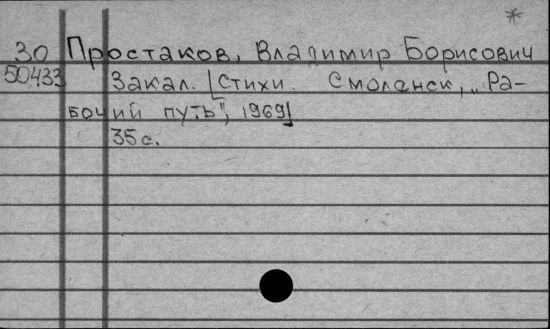 *
30 Простаков, Владимир Борисович
50433 Закал. [Стихи. Смоленск, „Ра-
бочий путь", 1969]
35 с.